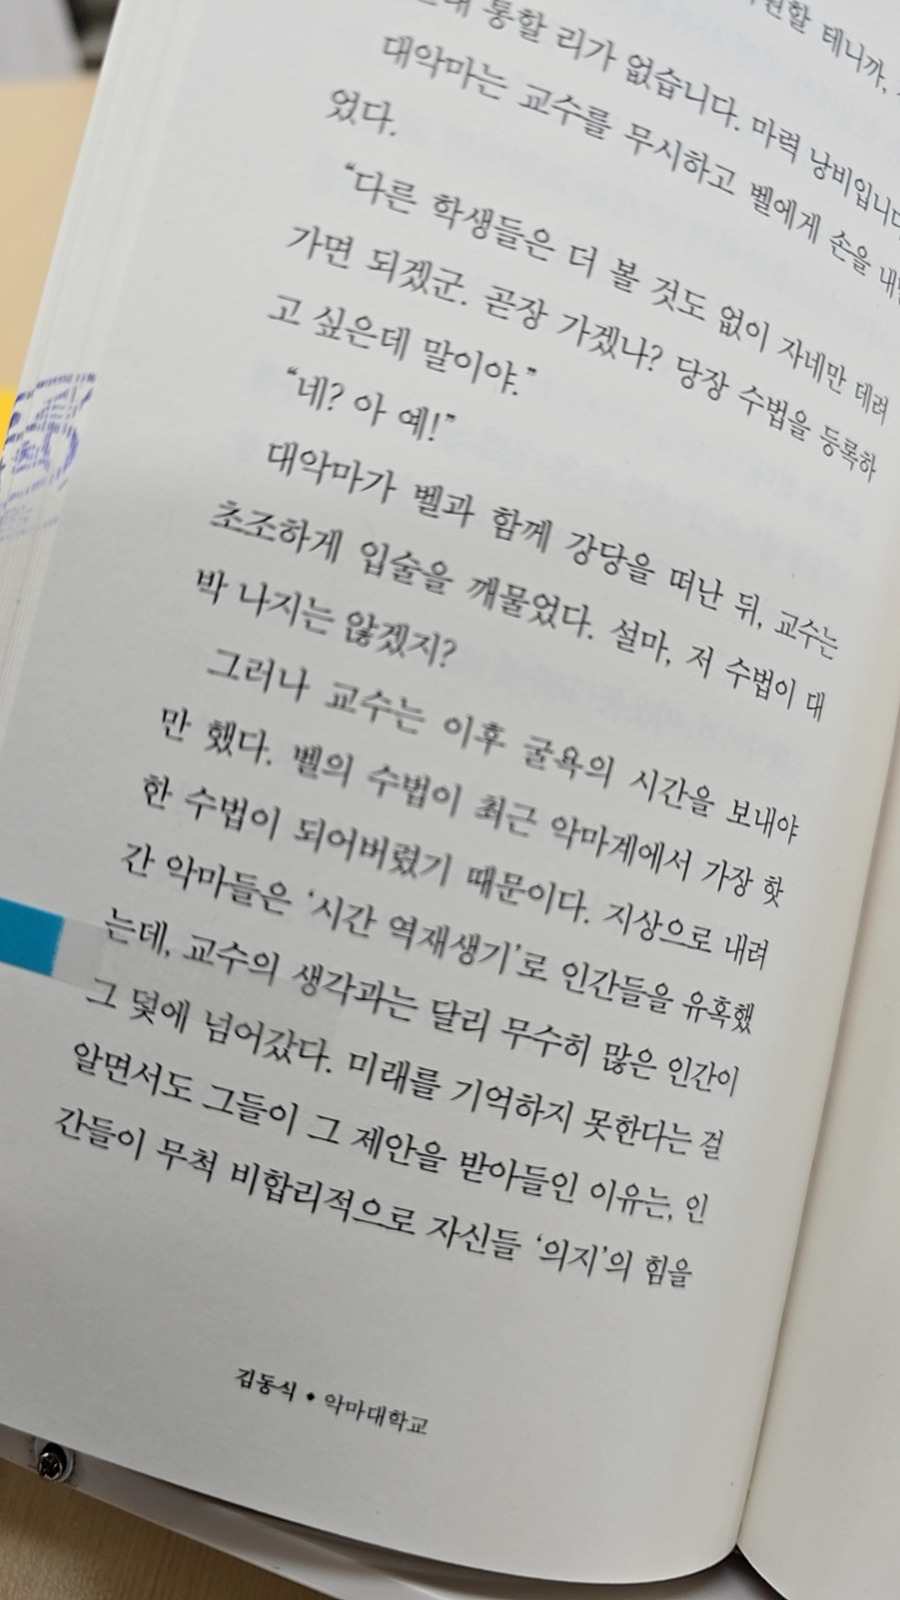 원할 테니까,
통할 리가 없습니다. 마력 낭비입니다
대악마는 교수를 무시하고 벨에게 손을 내밀
었다.
“다른 학생들은 더 볼 것도 없이 자네만 데려
가면 되겠군. 곧장 가겠나? 당장 수법을 등록하
고 싶은데 말이야.”
“네? 아 예!”
대악마가 벨과 함께 강당을 떠난 뒤, 교수는
초조하게 입술을 깨물었다. 설마, 저 수법이 대
박 나지는 않겠지?
그러나 교수는 이후 굴욕의 시간을 보내야
만 했다. 벨의 수법이 최근 악마계에서 가장 핫
한 수법이 되어버렸기 때문이다. 지상으로 내려
간 악마들은 ‘시간 역재생기’로 인간들을 유혹했
는데, 교수의 생각과는 달리 무수히 많은 인간이
그 덫에 넘어갔다. 미래를 기억하지 못한다는 걸
알면서도 그들이 그 제안을 받아들인 이유는, 인
간들이 무척 비합리적으로 자신들 ‘의지’의 힘을
김동식 ◆ 악마대학교